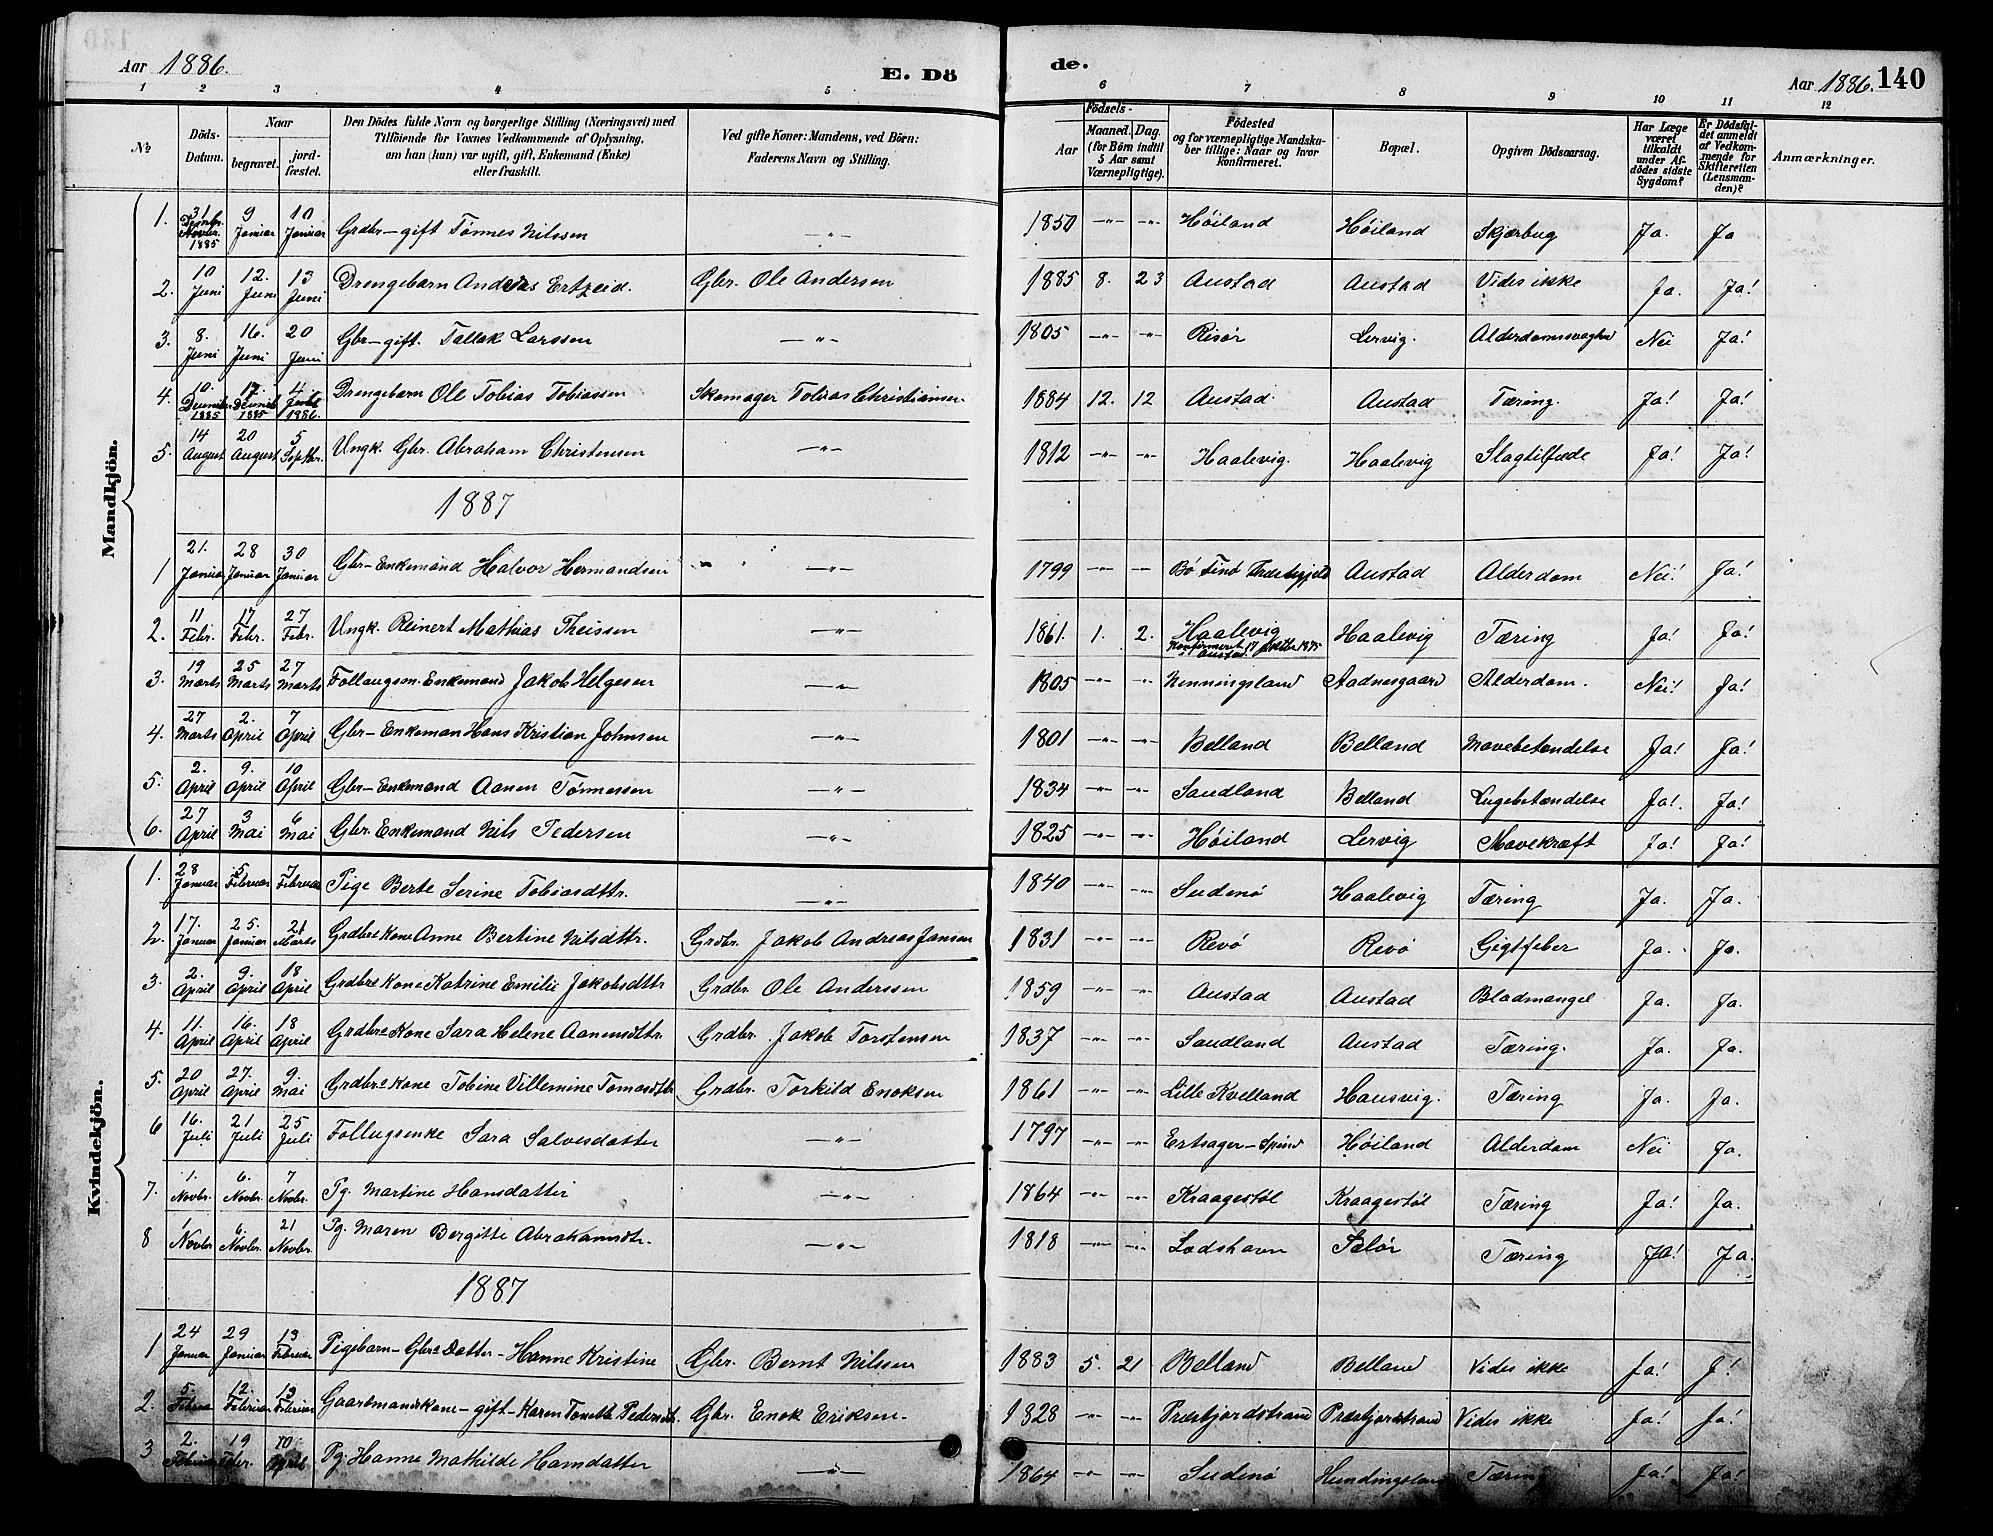 Aar 1886.
E. Dö
de.
Aar 1886. 140
1 2 3 4 5 6 7 8 9 10 11 12
№
Döds-Datum.
Naar begravet. jord-fæstet.
Den Dödes fulde Navn og borgerlige Stilling (Næringsvei) med Tilföiende for Voxnes Vedkommende af Oplysning, om han (hun) var ugift, gift, Enkemand (Enke) eller fraskilt.
Ved gifte Koner: Mandens, ved Börn: Faderens Navn og Stilling.
Födsels-
Aar Maaned. Dag. (for Börn indtil 5 Aar samt Værnepligtige).
Födested og for værnepligtige Mandskaber tillige: Naar og hvor konfirmeret.
Bopæl.
Opgiven Dödsaarsag.
Har Læge været tilkaldt under Afdödes sidste Sygdom?
Er Dödsfaldet anmeldt af Vedkommende for Skifteretten (Lensmanden)?
Anmærkninger.
Mandkjön.
1. 31 Novbr. 1885 9 Januar 10 Januar Grdbr – gift Tönnes Nilssen –„– 1850 –„– –„– Høiland Høiland Skjørbug Ja. Ja
2. 10 Juni 12. Juni 13 Juni Drengebarn Andreas Ertzeid. Gbr. Ole Andersen 1885 8. 23 Austad Austad Vides ikke Ja. Ja!
3. 8. Juni 16. Juni 20 Juni Gbr – gift. Tallak Larssen –„– 1805 –„– –„– Risør Lervig. Alderdomssvaghed Nei Ja!
4. 10. Decembr 1885 17. Decembr 1885 4 1886. Drengebarn Ole Tobias Tobiassen Skomager Tobias Christiansen 1884 12. 12 Austad Austad Tæring. Ja! Ja!
5. 14 August 20 August 5 Septbr. Ungk. Gbr. Abraham Christensen –„– 1812 –„– –„– Haalevig. Haalevig Slagtilfæde Ja! Ja!
1887
1 21. Januar 28 Januar 30 Januar Gbr – Enkemand Halvor Hermandsen –„– 1799 –„– –„– Bø Austad Alderdom Nei! Ja!
2. 11 Febr. 17 Febr. 27 Febr. Ungk. Reinert Mathias Theissen –„– 1861. 1. 2. Haalevig Konfirmeret 17 Oktbr 1875 Austad Haalevig Tæring Ja! Ja!
3. 19 Marts 25 Marts 27 Marts Follaugsm. Enkemand Jakob Helgesen –„– 1805 –„– –„– Nenningsland Aadnesgaard Alderdom. Nei! Ja!
4. 27 Marts 2. April 7 April Gbr – Enkeman Hans Kristian Johnsen –„– 1801 –„– –„– Belland Belland Mavebetændelse Ja! Ja!
5. 2. April 9. April 10 April Gbr – Enkemand Aanen Tönnessen –„– 1834 –„– –„– Sandland Belland Lugebetændelse Ja! Ja!
6. 27 April 3 Mai 6 Mai Gbr. Enkemand Nils Pedersen –„– 1825 –„– –„– Høiland Lervig Mavekræft Ja! Ja!
Kvindekjön.
1. 28 Januar 5 Februar 7 Februar Pige Berte Serine Tobiasdttr. –„– 1840 –„– –„– Sudenø Haalevig Tæring Ja. Ja.
2. 17. Januar 25. Januar 21 Marts Grdbrs Kone Anne Bertine Nilsdttr. Grdbr. Jakob Andreas Jansen 1831 –„– –„– Revø Revø Gigtfeber Ja. Ja.
3. 2. April 9. April 18 April Grdbrs Kone Katrine Emilie Jakobsdttr Grdbr. Ole Anderssen 1859 –„– –„– Austad Austad Blodmangel Ja. Ja.
4. 11. April 16. April 18 April Grdbrs Kone Sara Helene Aanensdttr. Grdbr. Jakob Torstensen 1837 –„– –„– Sandland Austad Tæring. Ja. Ja.
5. 20 April 27. April 9. Mai Grdbrs Kone Tobine Villemine Tomasdttr Grdbr. Torkild Enoksen 1861 –„– –„– Lille Kvelland Hausvig. Tæring Ja. Ja.
6 16. Juli 21 Juli 25 Juli Follugsenke Sara Salvesdatter –„– 1797 –„– –„– Ertsager – Spind Høiland Alderdom Nei Ja.
7. 1. Novbr. 6. Novbr. 7 Novbr. Pg. Martine Hansdatter –„– 1864 –„– –„– Kraagestøl Kraagestøl Tæring Ja! Ja.
8 1 Novbr 6. Novbr. 21 Novbr. Pg. Maren Bergitte Abrahamsdtr. –„– 1818 –„– –„– Lodshavn Selør Tæring Ja! Ja.
1887
1 24 Januar 29 Januar 13 Februar Pigebarn – Gbrs Datter – Hanne Kristine Gbr. Bernt Nilssen 1883 5. 21 Belland Belland Vides ikke Ja! J!
2. 5. Februar 12. Februar 13 Februar Gaardmandskone – gift – Karen Tonette Pedersdtr. Gbr. Enok Eriksen. 1828 –„– –„– Præstfjordstrand Præstfjordstrand Vides ikke Ja! Ja!
3 2. Februar 19 Febr. 10 April Pg. Hanne Mathilde Hansdatter –„– 1864 –„– –„– Sudenø Hundingsland Tæring Ja! Ja!